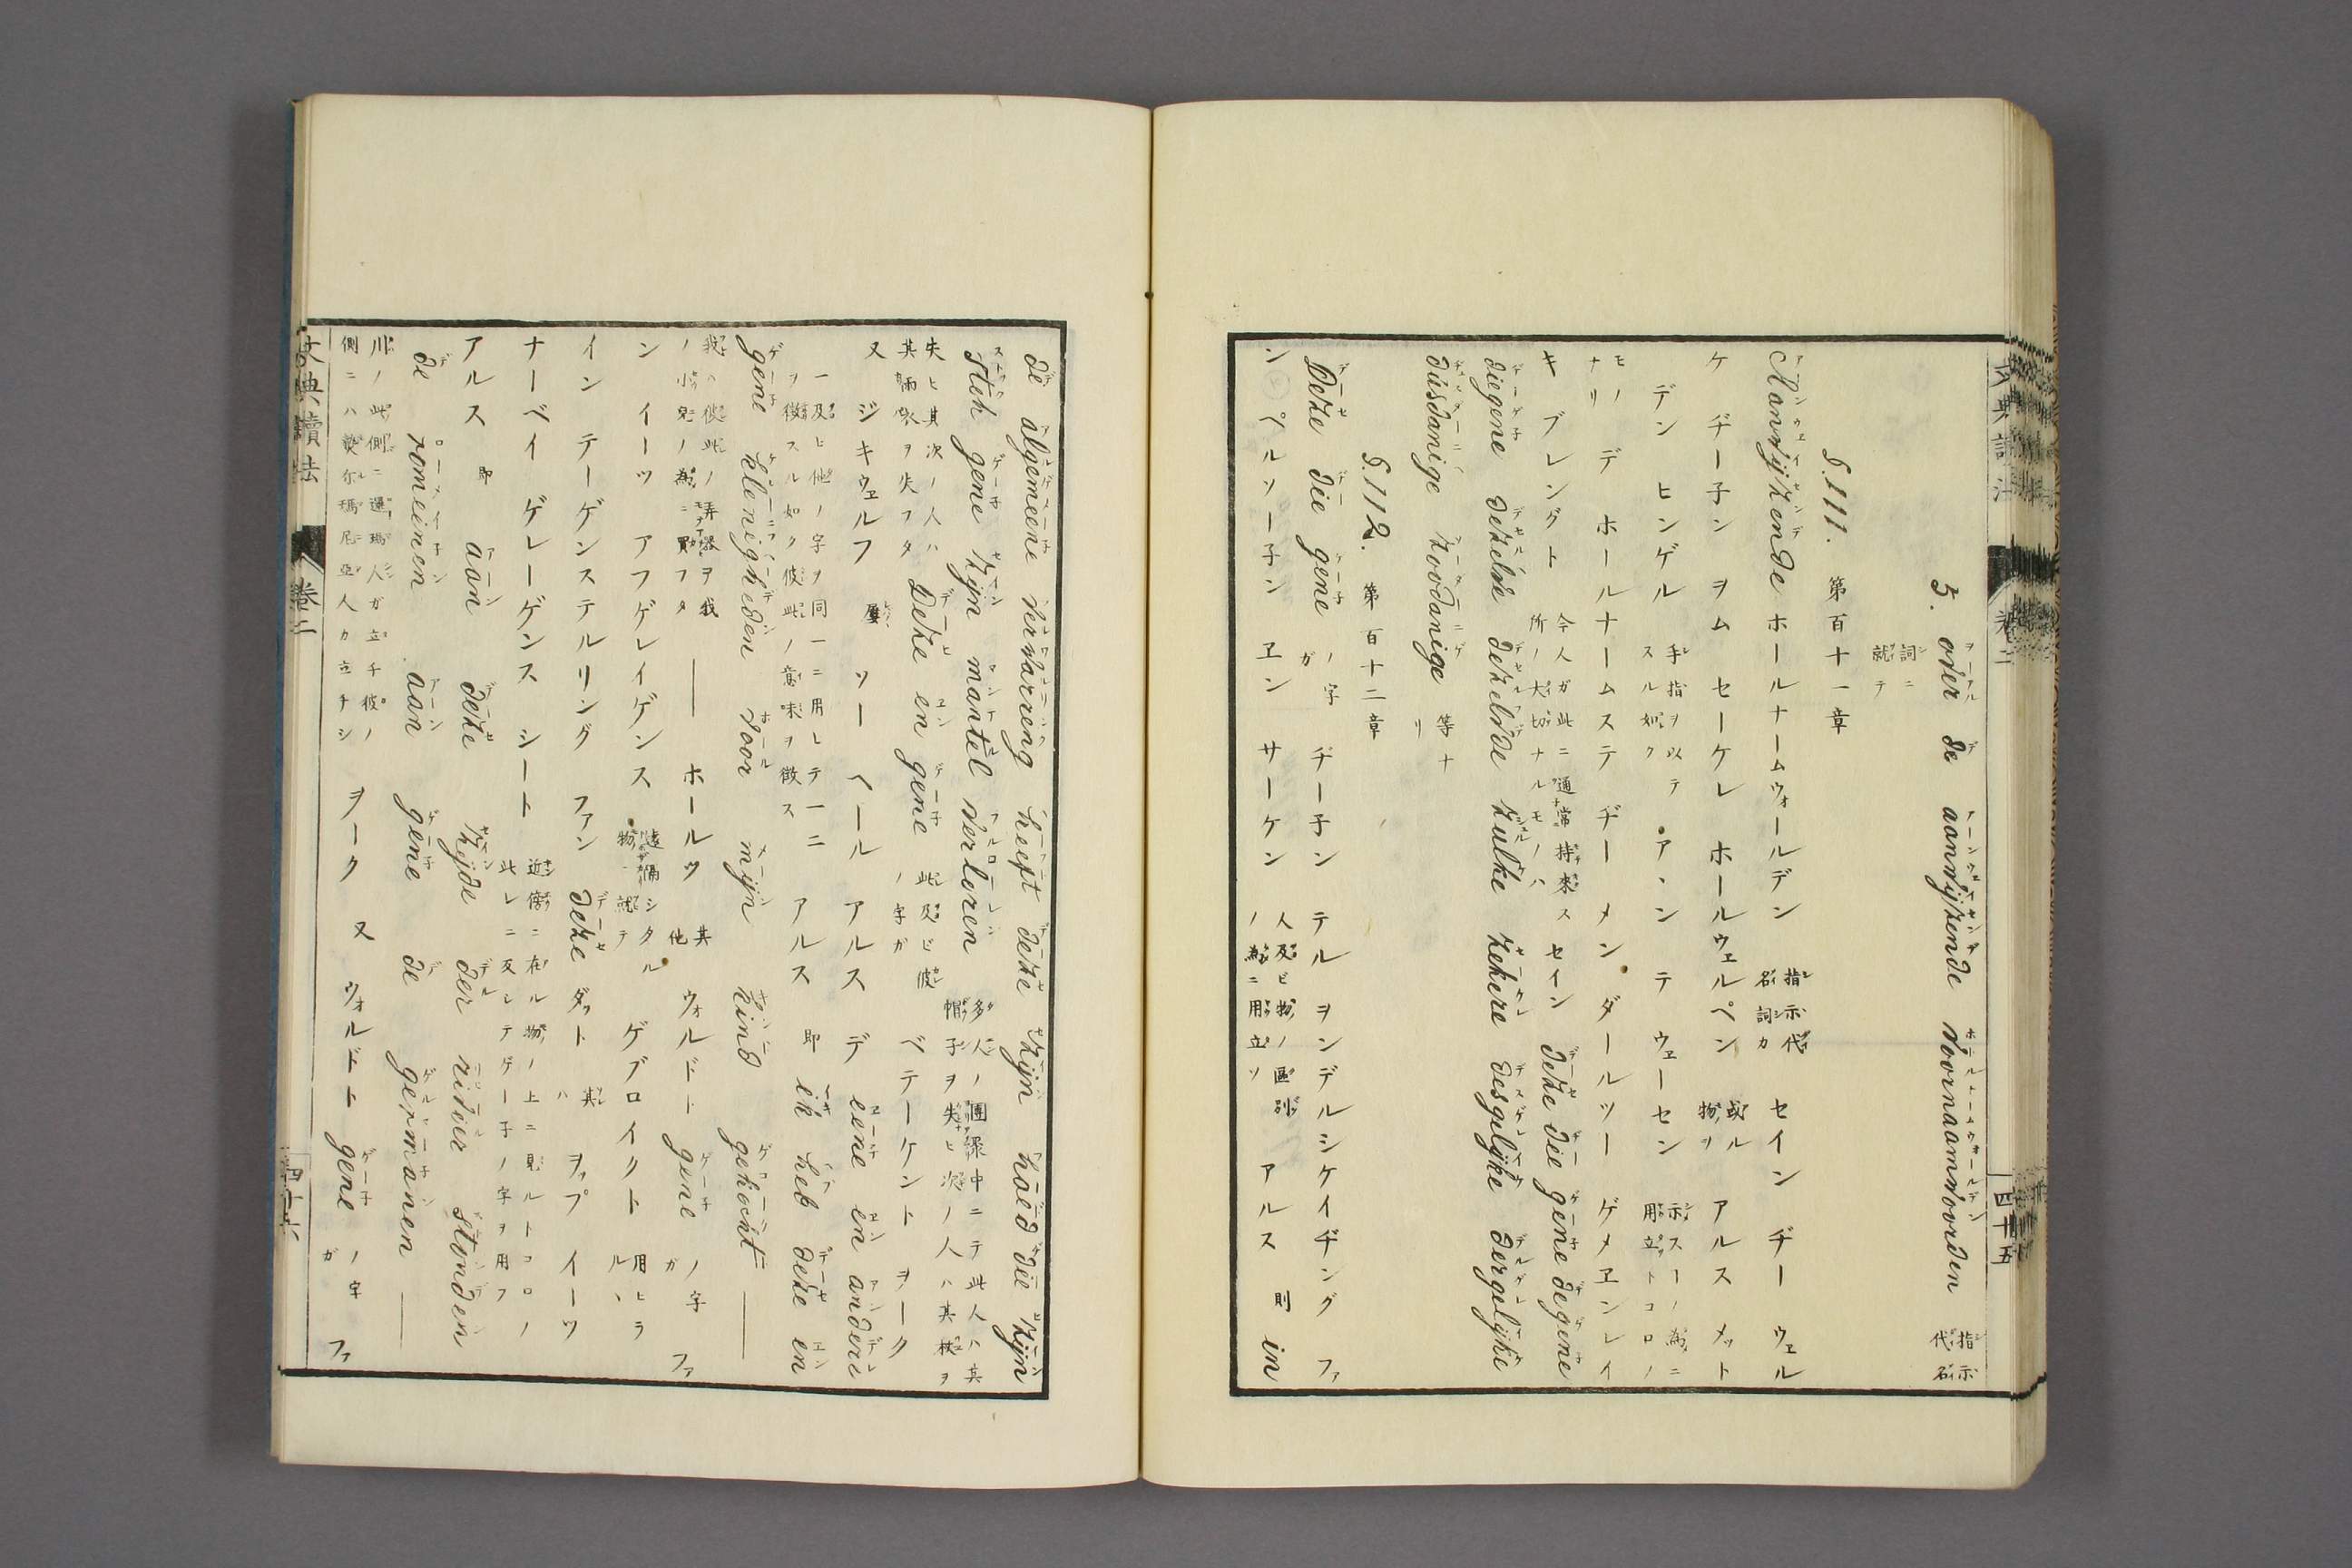 5. over de aanwijzende voornaamwoorden 指示代名
詞ニ就テ
§.111. 第百十一章
Aanwijzende ホールナームウォールデン 指示代名詞カ セイン ヂー ウェル
ケ ヂー子ン ヲム セーケレ ホールウェルペン 或ル物ヲ アルス メット
デン ヒンゲル 手指ヲ以テスル如ク アーン テ ウェーセン 示スーノ為ニ用立トコロノ
モノナリ デ ホールナームステ ヂー メン ダールツー ゲメヱンレイ
キ ブレングト 今人ガ此ニ通常持来ス所ノ大切ナルモノハ セイン deze die gene degene
diegene dezelve dezelvde zulke zekere desgelijke dergelijke
dusdanige zoodanige 等ナリ
§.112. 第百十二章
Deze die gene ノ字ガ ヂー子ン テル ヲンデルシケイヂング ファ
ン ペルソー子ン ヱン サーケン 人及ビ物ノ區別ノ為ニ用立ツ アルス 則 in
de algemeene verwarring heeft deze zijn hoed die zijn
stok gene zijn mantel verloren 多人ノ團欒中ニテ此人ハ其帽子ヲ失ヒ次ノ人ハ其杖ヲ
失ヒ其次ノ人ハ其裲袂ヲ失フタ Deze en gene 此及ビ彼ノ字ガ ベテーケント ヲーク
又 ジキウェルフ 屡 ソー ヘール アルス デ eene en andere
一及ヒ他ノ字ヲ同一ニ用レテ一ニヲ徴スル如ク彼此ノ意味ヲ徴ス アルス 即 ik heb deze en
gene kleinigheden voor mijn kind gekocht ―
我ハ彼此ノ弄器ヲ我ノ小兒ノ為ニ買フタ ― ホールツ 其他 ウォルドト gene ノ字ガ ファ
ン イーツ アフゲレイゲンス 遠隔シタル物ニ就テ ゲブロイクト 用ヒラル丶
イン テーゲンステルリング ファン deze ダット 其ハ ヲップ イーツ
ナーベイ ゲレーゲンス シート 近傍ニ在ル物ノ上ニ見ルトコロノ此レニ反シテゲー子ノ字ヲ用フ
アルス 即 aan deze zijde der rivier stonden
de romeinen aan gene de germanen ―
川ノ此側ニ邏瑪人ガ立チ彼ノ側ニハ熱尓瑪尼亜人カ立チシ ヲーク 又 ウォルドト gene ノ字ガ ファ
文典讀法 卷二 四十六